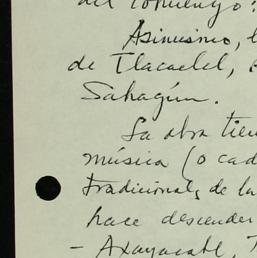 del comienzo:
Asimismo, l
de Tlacaelel,
Sahagún.
La obra tien
música (o cad
tradicional, de la
hace descender
- Axayacatl, T